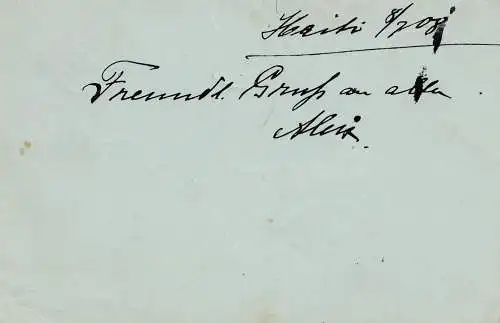 Haiti 8/7 08
Freundl. Gruß an allen.
Alois.